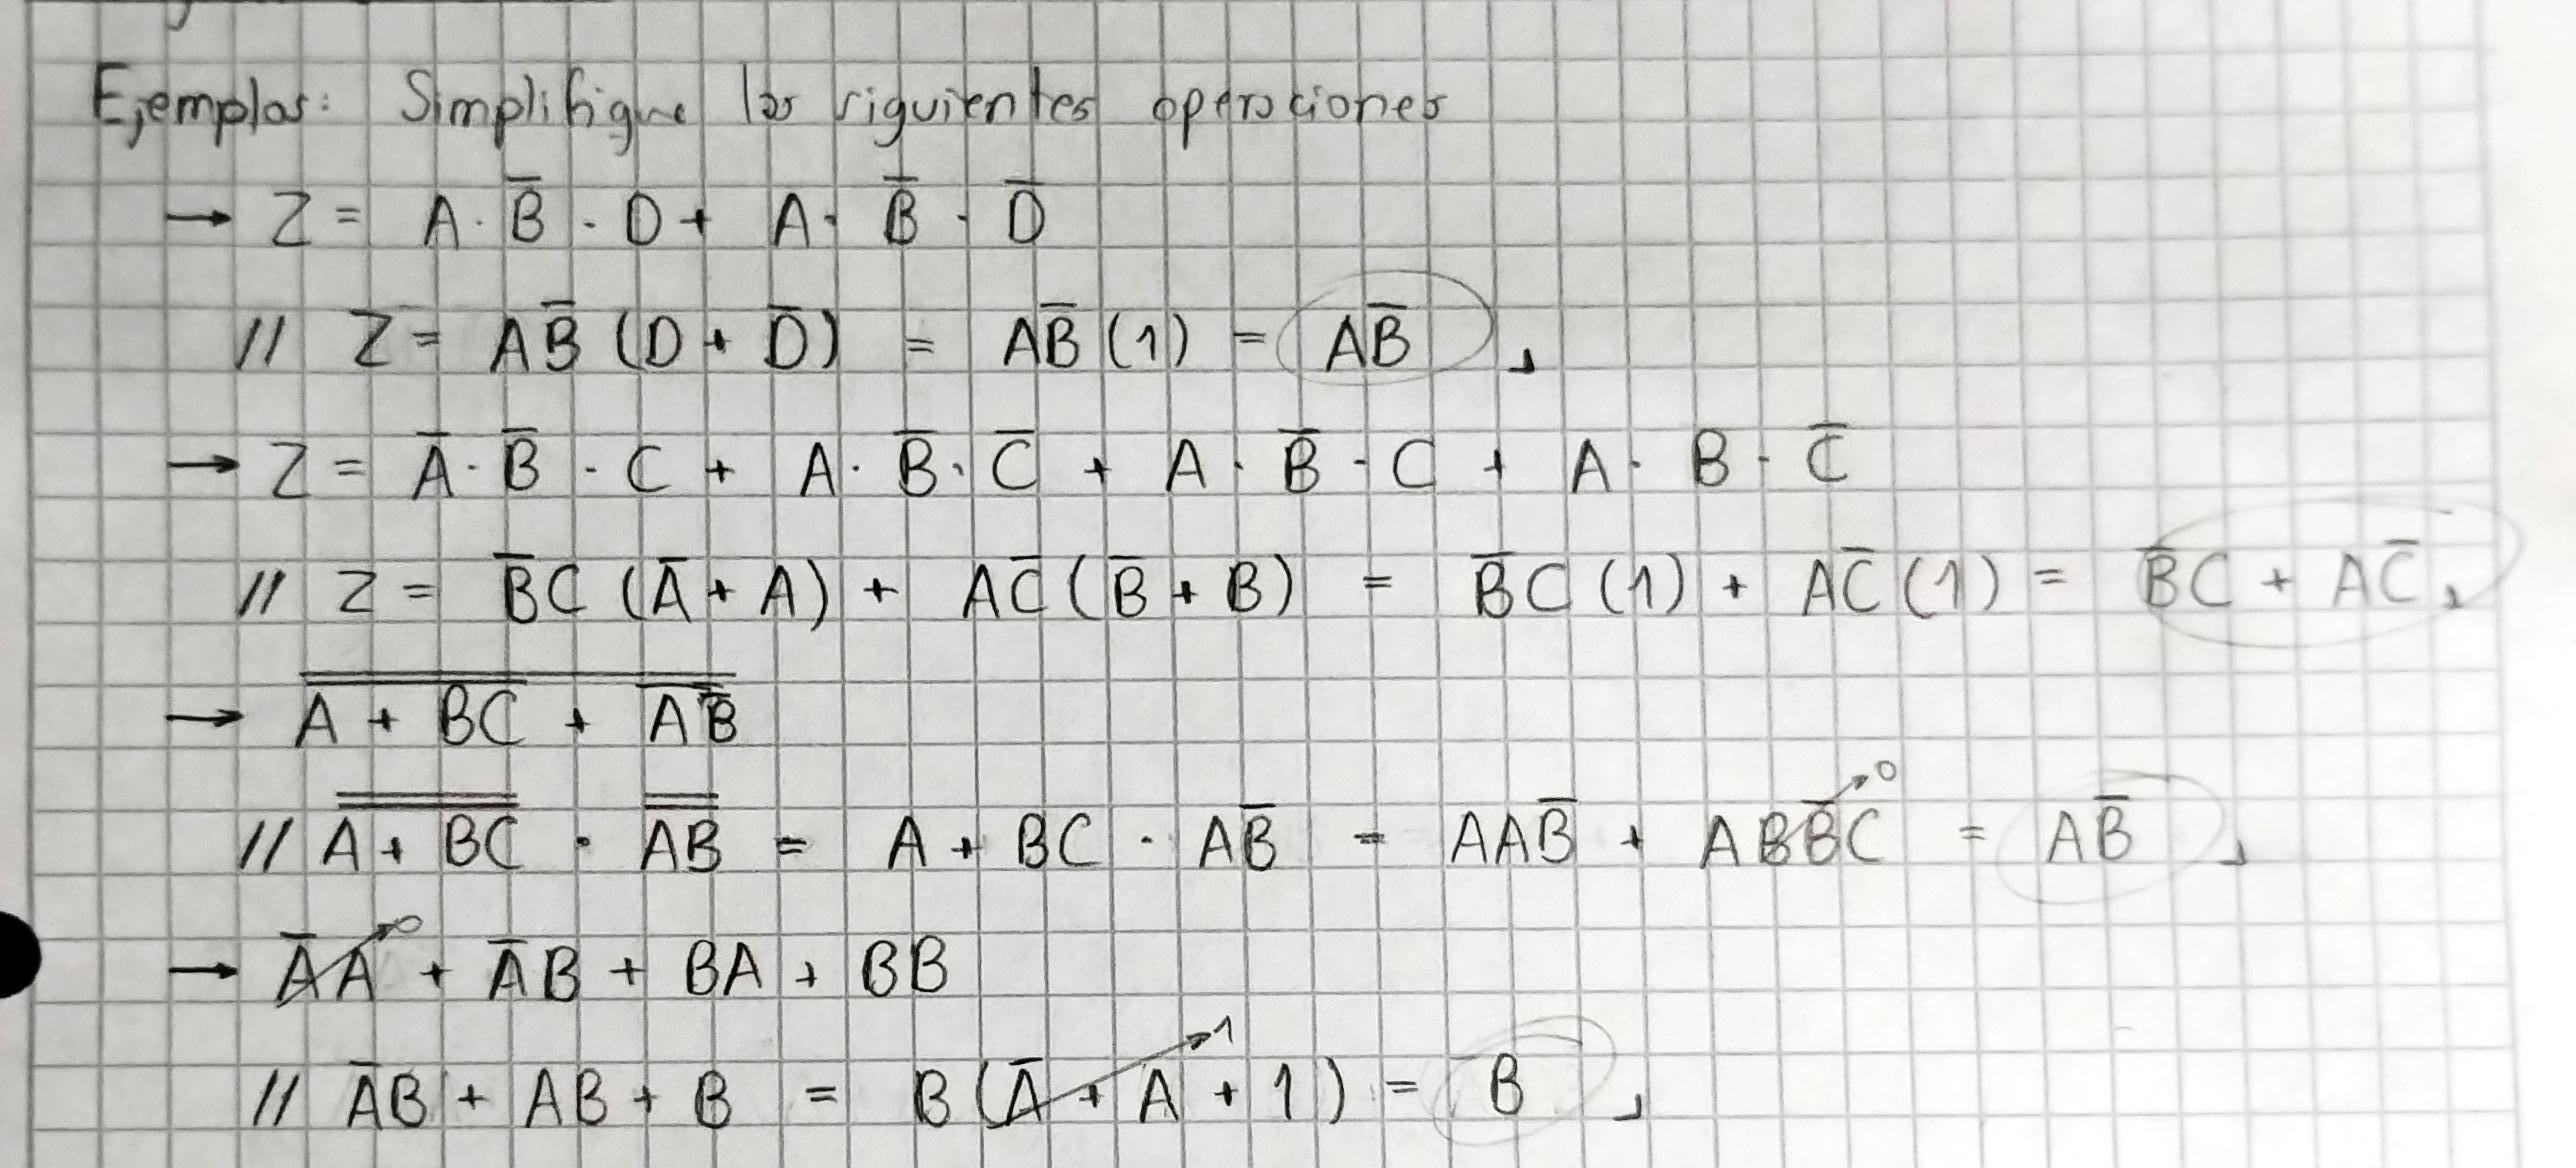 Ejemplos: Simplifique las siguientes operaciones
→ Z = A · B̅ · D + A · B̅ · D̅
// Z = AB̅ (D + D̅) = AB̅ (1) = AB̅
→ Z = A̅ · B̅ · C + A · B̅ · C̅ + A · B̅ · C + A · B · C̅
// Z = B̅C (A̅ + A) + AC̅ (B̅ + B) = B̅C (1) + AC̅ (1) = B̅C + AC̅
→ \overline{\overline{A + BC} + \overline{AB̅}}
// \overline{\overline{A + BC}} · \overline{\overline{AB}} = A + BC · AB̅ = AAB̅ + ABB̅C → 0 = AB̅
→ A̅A → 0 + A̅B + BA + BB
// A̅B + AB + B = B (A̅ + A + 1) → 1 = B